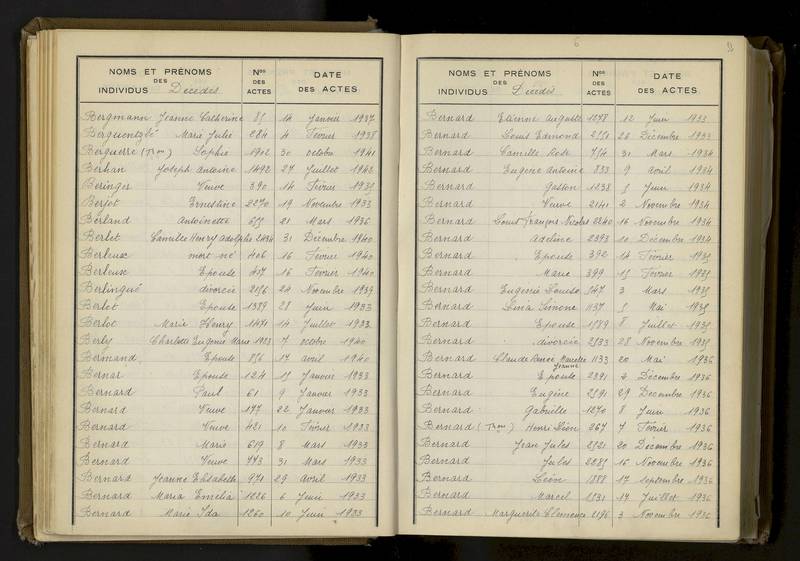 NOMS ET PRÉNOMS
DES
INDIVIDUS Décédés
Nos
DES
ACTES
DATE
DES ACTES
Bergmann Jeanne Catherine 85 14 Janvier 1937
Marie Julie 284 4 Février 1938
Berguerre Sophie 1902 30 octobre 1941
Berhan Joseph Antoine 1492 27 Juillet 1942
Beringer Veuve 390 14 Février 1935
Berjot Ernestine 2270 19 Novembre 1933
Berland Antoinette 655 21 Mars 1936
Berlet Camille Henry Adolphe 2434 31 Décembre 1940
Berleux mort né 406 16 Février 1940
Berleux Epouse 407 16 Février 1940
Berlingué divorcée 2156 24 Novembre 1939
Berlot Epouse 1389 28 Juin 1933
Berlot Marie Henry 1471 14 Juillet 1933
Berly Charlotte Eugénie Marie 1983 7 octobre 1940
Bermand Epouse 856 17 avril 1940
Bernar Epouse 124 15 Janvier 1933
Bernard Paul 61 9 Janvier 1933
Bernard Veuve 177 22 Janvier 1933
Bernard Veuve 421 10 Février 1933
Bernard Marie 619 8 Mars 1933
Bernard Veuve 773 31 Mars 1933
Bernard Jeanne Elisabeth 971 29 Avril 1933
Bernard Maria Emélia 1226 6 Juin 1933
Bernard Marie Ida 1260 10 Juin 1933
6
NOMS ET PRÉNOMS
DES
INDIVIDUS Décédés
Nos
DES
ACTES
DATE
DES ACTES
Bernard Etienne Auguste 1278 12 Juin 1933
Bernard Louis Edmond 2551 26 Décembre 1933
Bernard Camille Rose 754 31 Mars 1934
Bernard Eugène Antoine 833 9 avril 1934
Bernard Gaston 1238 5 Juin 1934
Bernard Veuve 2141 2 Novembre 1934
Bernard Louis François Nicolas 2240 16 Novembre 1934
Bernard Adeline 2393 10 Décembre 1934
Bernard Epouse 392 14 Février 1935
Bernard Marie 399 15 Février 1935
Bernard Eugénie Louise 547 3 Mars 1935
Bernard Simone 1137 5 Mai 1935
Bernard Epouse 1589 8 Juillet 1935
Bernard divorcée 2533 28 Novembre 1935
Bernard Claude Renée Marcelle 1133 20 Mai 1936
Jeanne
Bernard Epouse 2391 2 Décembre 1936
Bernard Eugène 2591 29 Décembre 1936
Bernard Gabrielle 1270 8 Juin 1936
Bernard Henri Léon 267 7 Février 1936
Bernard Jean Jules 2521 20 Décembre 1936
Bernard Jules 2285 16 Novembre 1936
Bernard Léon 1888 17 septembre 1936
Bernard Marcel 1531 17 Juillet 1936
Bernard Marguerite Clémence 2196 3 Novembre 1936